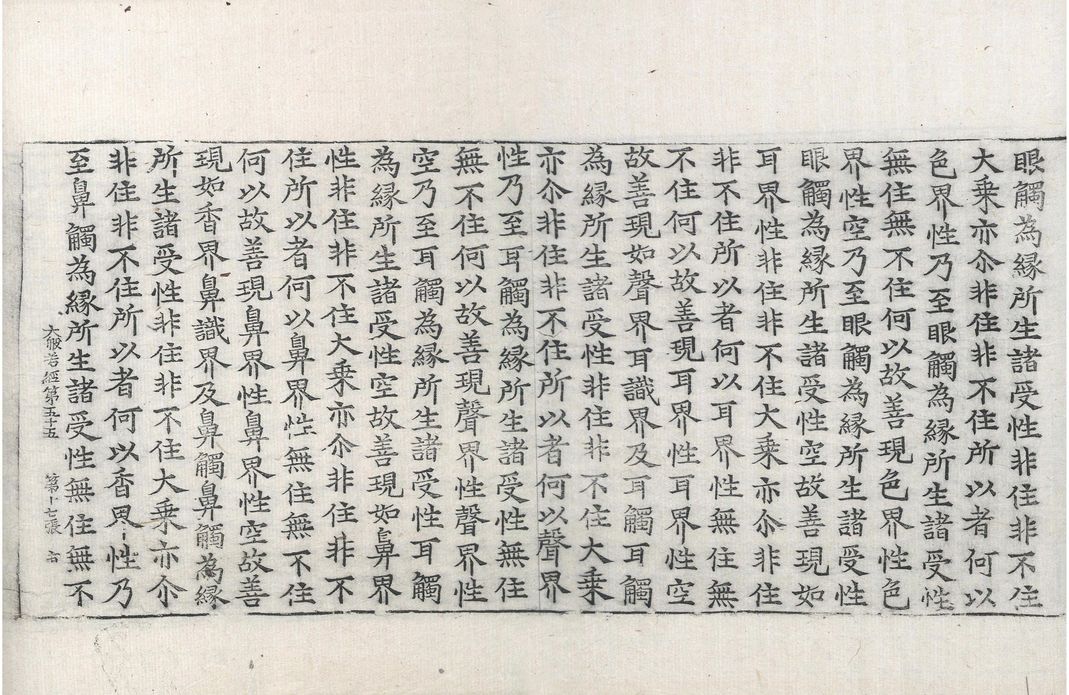 眼觸為縁所生諸受性非住非不住
大乗亦尒非住非不住所以者何以
色界性乃至眼觸為縁所生諸受性
無住無不住何以故善現色界性色
界性空乃至眼觸為縁所生諸受性
眼觸為縁所生諸受性空故善現如
耳界性非住非不住大乗亦尒非住
非不住所以者何以耳界性無住無
不住何以故善現耳界性耳界性空
故善現如聲界耳識界及耳觸耳觸
為縁所生諸受性非住非不住大乗
亦尒非住非不住所以者何以聲界
性乃至耳觸為縁所生諸受性無住
無不住何以故善現聲界性聲界性
空乃至耳觸為縁所生諸受性耳觸
為縁所生諸受性空故善現如鼻界
性非住非不住大乗亦尒非住非不
住所以者何以鼻界性無住無不住
何以故善現鼻界性鼻界性空故善
現如香界鼻識界及鼻觸鼻觸為縁
所生諸受性非住非不住大乗亦尒
非住非不住所以者何以香界性乃
至鼻觸為縁所生諸受性無住無不
大般若經第五十五 第十七張